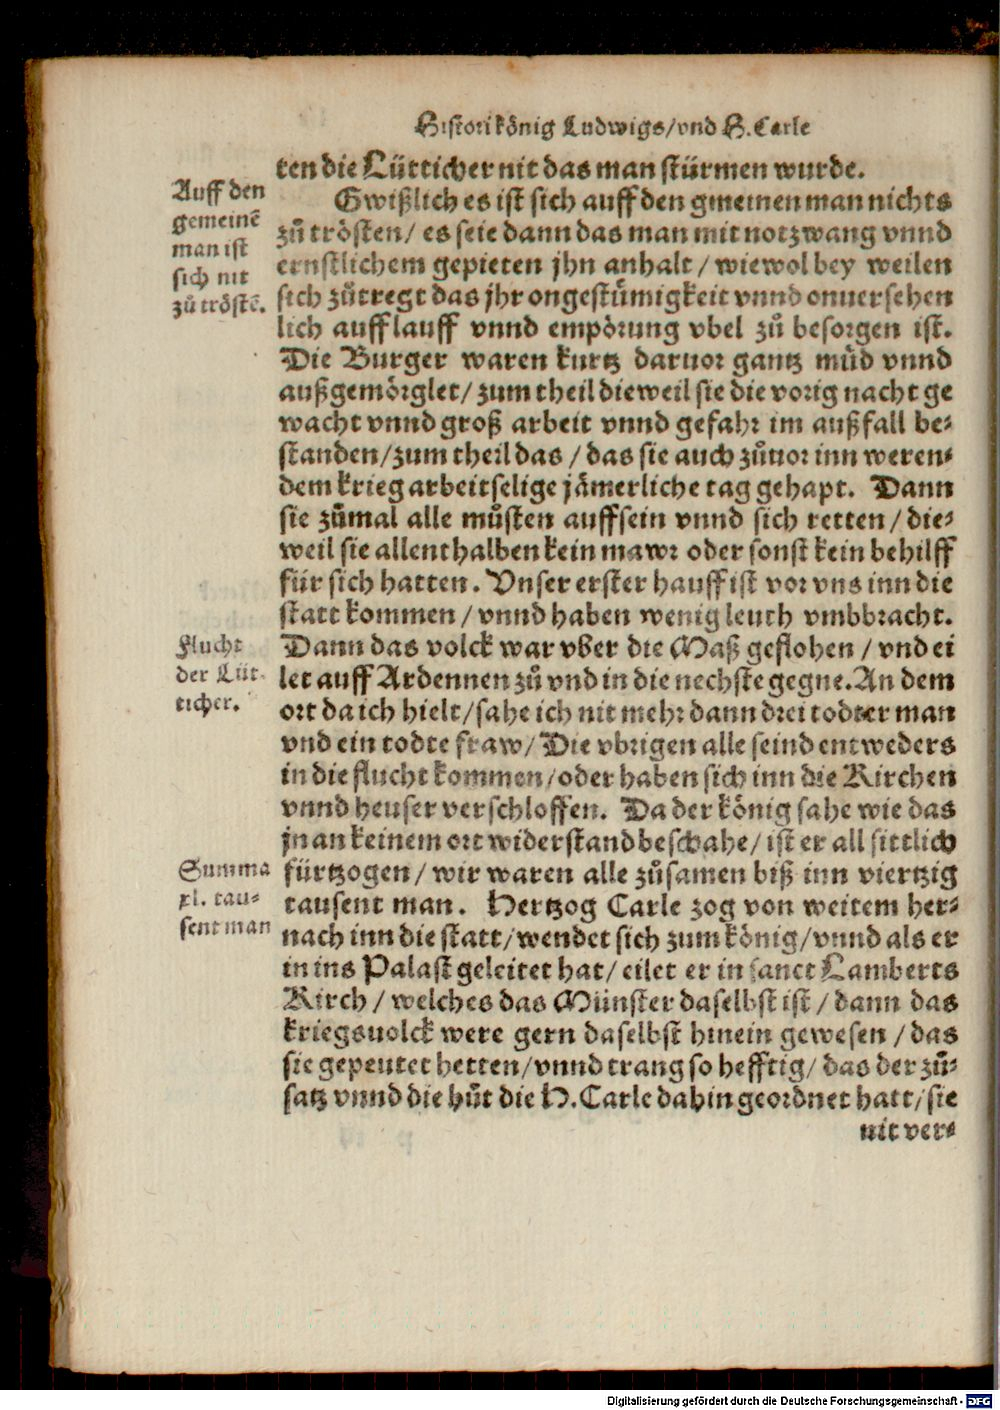 Histori könig Ludwigs/vnd H. Carle
ten die Lütticher nit das man stürmen wurde.
Auff den
gemeinē
man ist
sich nit
zů tröstē.
Gwißlich es ist sich auff den gmeinen man nichts
zů trösten/ es seie dann das man mit notzwang vnnd
ernstlichem gepieten jhn anhalt / wiewol bey weilen
sich zůtregt das jhr ongestümigkeit vnnd onuersehen
lich aufflauff vnnd empörung vbel zů besorgen ist.
Die Burger waren kurtz daruor gantz müd vnnd
außgemörglet/ zum theil dieweil sie die vorig nacht ge
wacht vnnd groß arbeit vnnd gefahr im außfall be-
standen/zum theil das / das sie auch zůuor inn weren-
dem krieg arbeitselige jämerliche tag gehapt. Dann
sie zůmal alle můsten auffsein vnnd sich retten / die-
weil sie allenthalben kein mawr oder sonst kein behilff
für sich hatten. Vnser erster hauff ist vor vns inn die
statt kommen / vnnd haben wenig leuth vmbbracht.
Flucht
der Lüt-
ticher.
Dann das volck war vber die Maß geflohen / vnd ei
let auff Ardennen zů vnd in die nechste gegne. An dem
ort da ich hielt/sahe ich nit mehr dann drei todter man
vnd ein todte fraw/ Die vbrigen alle seind entweders
in die flucht kommen/oder haben sich inn die Kirchen
vnnd heuser verschlossen. Da der könig sahe wie das
jn an keinem ort widerstand beschahe/ ist er all sittlich
Summa
xl. tau-
sent man
fürtzogen / wir waren alle zůsamen biß inn viertzig
tausent man. Hertzog Carle zog von weitem her-
nach inn die statt/wendet sich zum könig/vnnd als er
in ins Palast geleitet hat/ eilet er in sanct Lamberts
Kirch / welches das Münster daselbst ist / dann das
kriegsuolck were gern daselbst hinein gewesen / das
sie gepeutet hetten/vnnd trang so hefftig/ das der zů-
satz vnnd die hůt die H. Carle dahin geordnet hatt/ sie
nit ver-
Digitalisierung gefördert durch die Deutsche Forschungsgemeinschaft - DFG